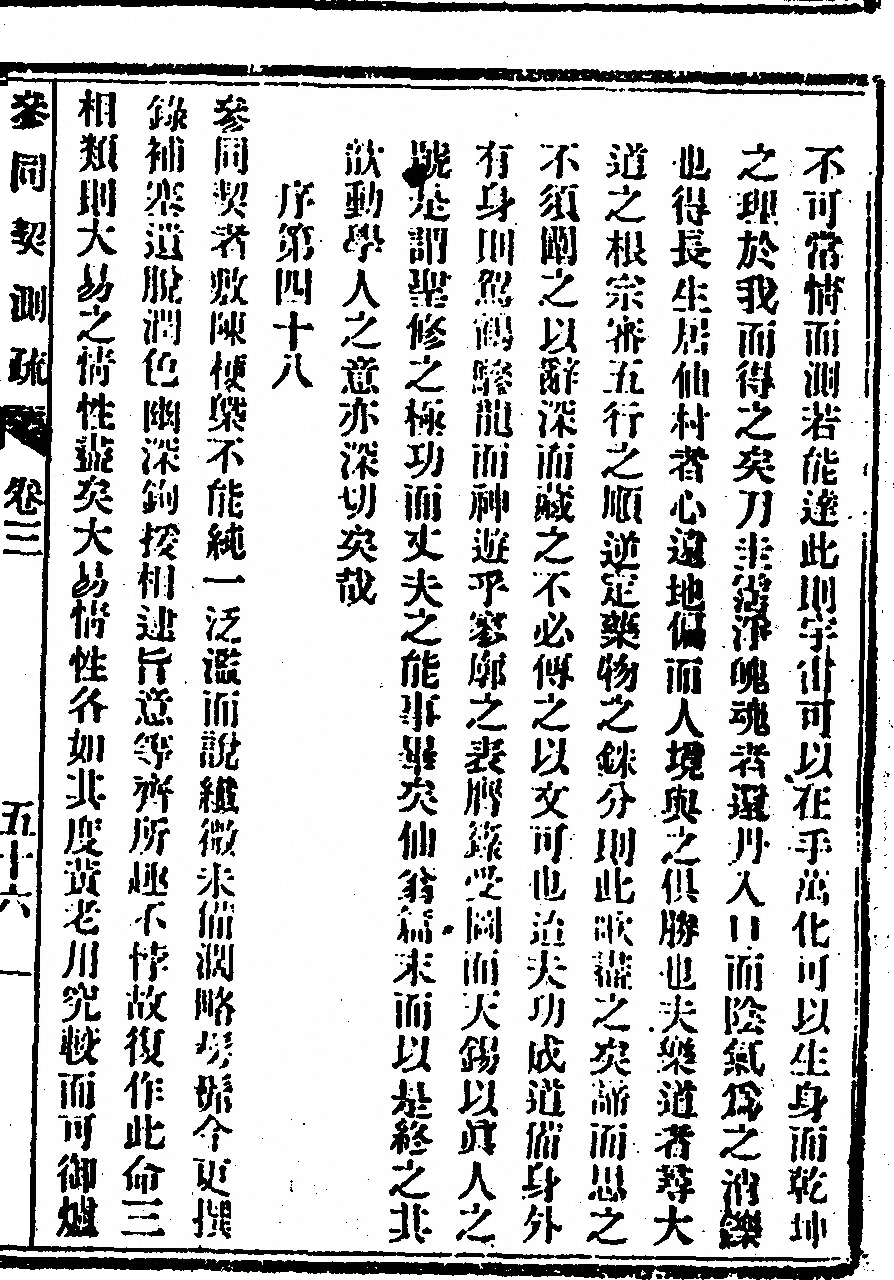 不可常情而測若能達此則宇宙可以在手萬化可以生身而乾坤
之理於我而得之矣刀圭霑淨魄魂者還丹入口而陰氣爲之消鑠
也得長生居仙村者心遠地偏而人境與之俱勝也夫樂道者尋大
道之根宗審五行之順逆定藥物之銖分則此歌盡之矣諦而思之
不須闡之以辭深而藏之不必傳之以文可也迨夫功成道備身外
有身則駕鶴驂龍而神遊乎寥廓之表膺籙受圖而天錫以眞人之
號是謂聖修之極功而丈夫之能事畢矣仙翁篇末而以是終之其
歆動學人之意亦深切矣哉
序第四十八
參同契者敷陳梗槩不能純一泛濫而說纖微未備濶略髣髴今更撰
錄補塞遺脫潤色幽深鉤援相逮旨意等齊所趣不悖故復作此命三
相類則大易之情性盡矣大易情性各如其度黃老用究較而可御爐
參同契測疏 卷三 五十六